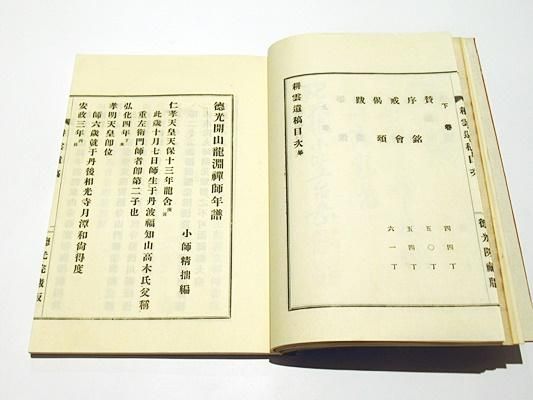 下卷
贊
序 銘
戒 會
偈 頌
跋
六一丁
耕雲遺稿目次 畢
德光開山龍淵禪師年譜
小師精拙編
仁孝天皇天保十三年龍舍
此歲十月七日師生于丹波福知山高木氏父稱
重左衛門師者即第二子也
弘化四年
孝明天皇即位
師六歲就于丹後相光寺月潭和尚得度
安政三年
耕雲遺稿